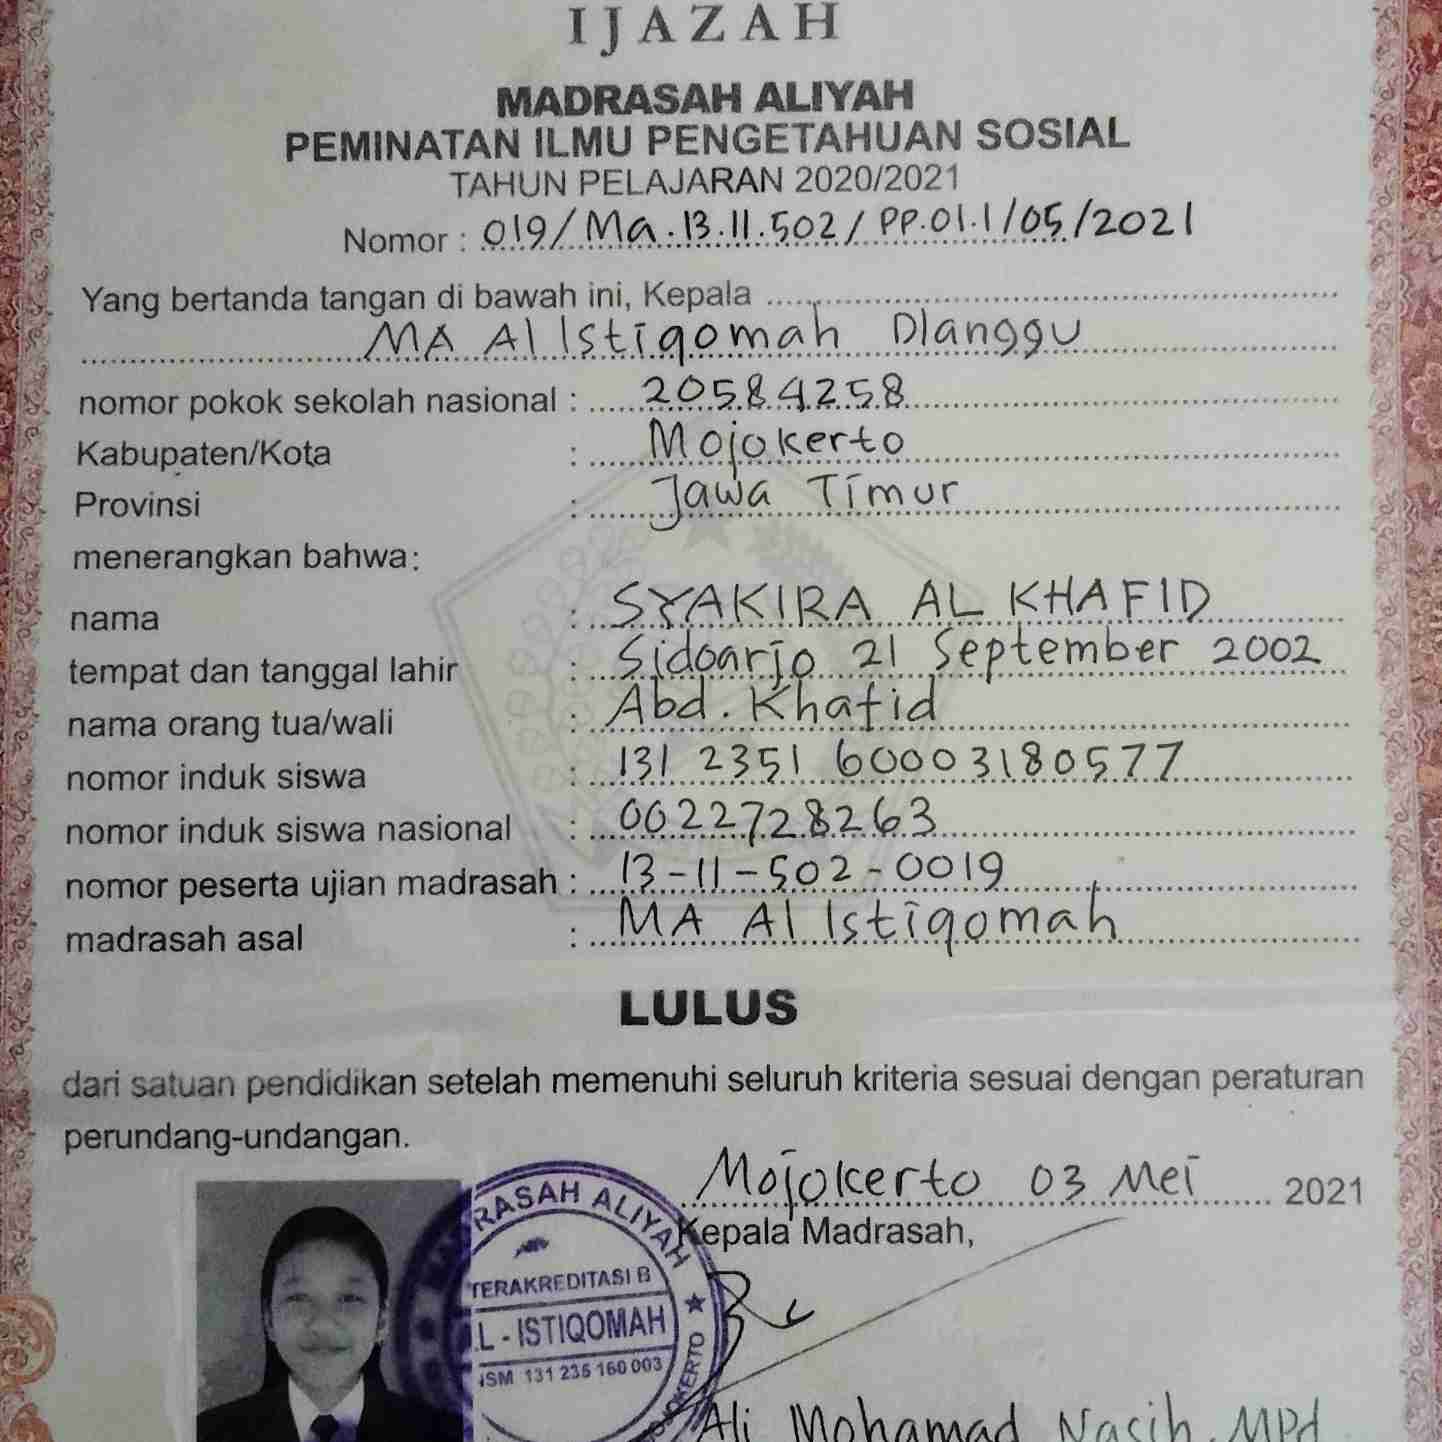 IJAZAH
MADRASAH ALIYAH
PEMINATAN ILMU PENGETAHUAN SOSIAL
TAHUN PELAJARAN 2020/2021
Nomor : 019/Ma.13.11.502/PP.01.1/05/2021
Yang bertanda tangan di bawah ini, Kepala
MA Al Istiqomah Dlanggu
nomor pokok sekolah nasional : 20584258
Kabupaten/Kota : Mojokerto
Provinsi : Jawa Timur
menerangkan bahwa:
nama : SYAKIRA AL KHAFID
tempat dan tanggal lahir : Sidoarjo 21 September 2002
nama orang tua/wali : Abd. Khafid
nomor induk siswa : 131 2351 60003180577
nomor induk siswa nasional : 0022728263
nomor peserta ujian madrasah : 13-11-502-0019
madrasah asal : MA Al Istiqomah
LULUS
dari satuan pendidikan setelah memenuhi seluruh kriteria sesuai dengan peraturan
perundang-undangan.
Mojokerto 03 Mei 2021
Kepala Madrasah,
RASAH ALIYAH
TERAKREDITASI B
L - ISTIQOMAH
NSM 131 235 160 003
MOJOKERTO
Ali Mohamad Nasih, MPd